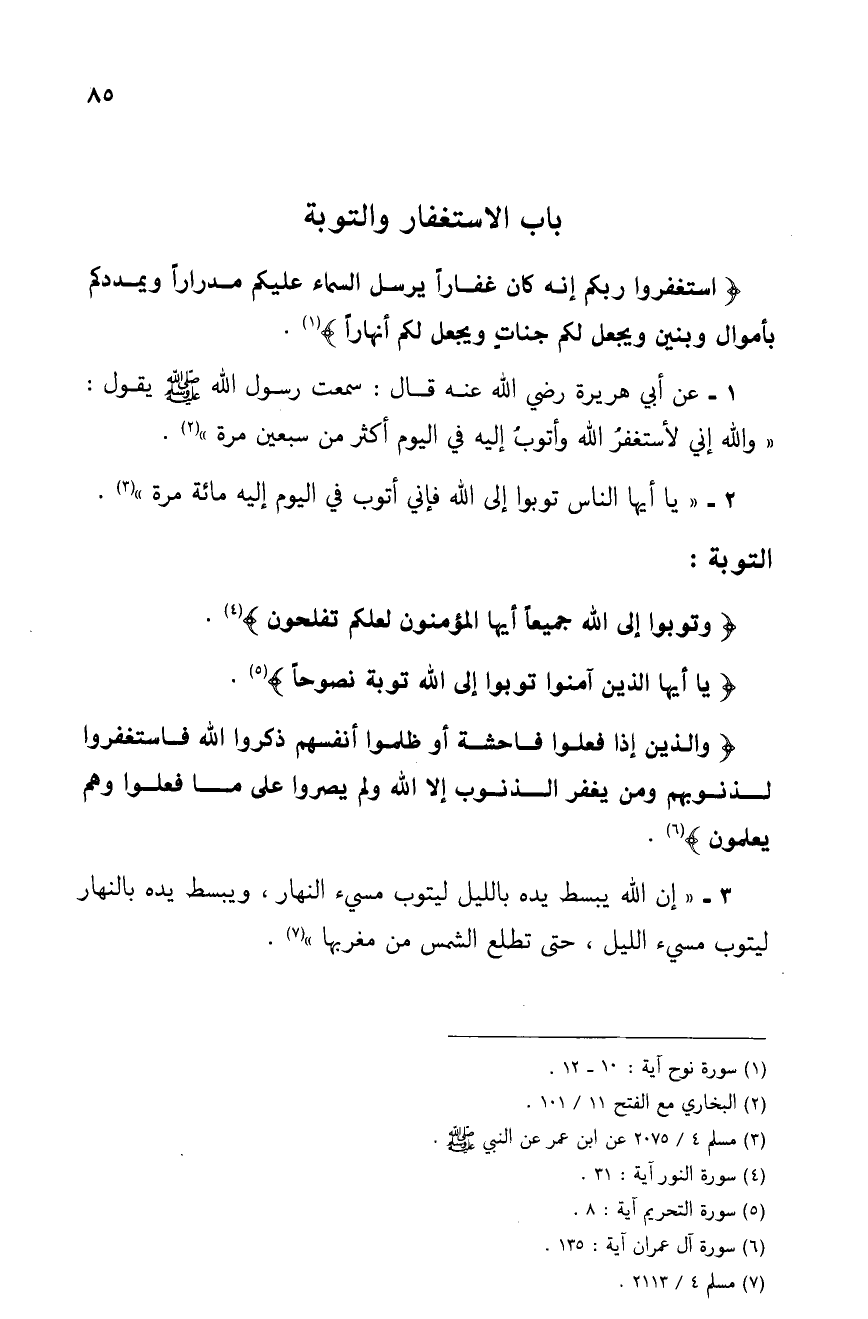 ٨٥
باب الاستغفار والتوبة
﴿ استغفروا ربكم إنه كان غفاراً يرسل السماء عليكم مدراراً ويمددكم
بأموال وبنين ويجعل لكم جناتٍ ويجعل لكم أنهاراً ﴾(١) .
١ ـ عن أبي هريرة رضي الله عنه قال : سمعت رسول الله ﷺ يقول :
« والله إني لأستغفرُ الله وأتوبُ إليه في اليوم أكثر من سبعين مرة »(٢) .
٢ ـ « يا أيها الناس توبوا إلى الله فإني أتوب في اليوم إليه مائة مرة »(٣) .
التوبة :
﴿ وتوبوا إلى الله جميعاً أيها المؤمنون لعلكم تفلحون ﴾(٤) .
﴿ يا أيها الذين آمنوا توبوا إلى الله توبة نصوحاً ﴾(٥) .
﴿ والذين إذا فعلوا فاحشة أو ظلموا أنفسهم ذكروا الله فاستغفروا
لذنوبهم ومن يغفر الذنوب إلا الله ولم يصروا على ما فعلوا وهم
يعلمون ﴾(٦) .
٣ ـ « إن الله يبسط يده بالليل ليتوب مسيء النهار ، ويبسط يده بالنهار
ليتوب مسيء الليل ، حتى تطلع الشمس من مغربها »(٧) .
(١) سورة نوح آية : ١٠ ـ ١٢ .
(٢) البخاري مع الفتح ١١ / ١٠١ .
(٣) مسلم ٤ / ٢٠٧٥ عن ابن عمر عن النبي ﷺ .
(٤) سورة النور آية : ٣١ .
(٥) سورة التحريم آية : ٨ .
(٦) سورة آل عمران آية : ١٣٥ .
(٧) مسلم ٤ / ٢١١٣ .